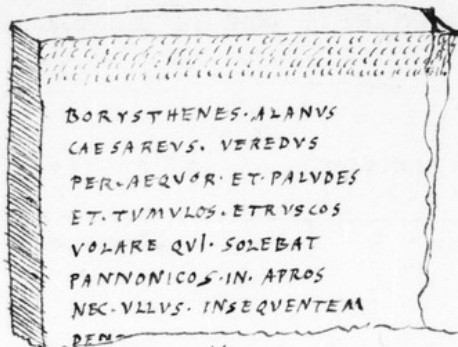 BORYSTHENES·ALANVS
CAESAREVS· VEREDVS
PER·AEQVOR·ET·PALVDES
ET·TVMVLOS·ETRVSCOS
VOLARE QVI· SOLEBAT
PANNONICOS·IN·APROS
NEC·VLLVS· INSEQVENTEM
DEN